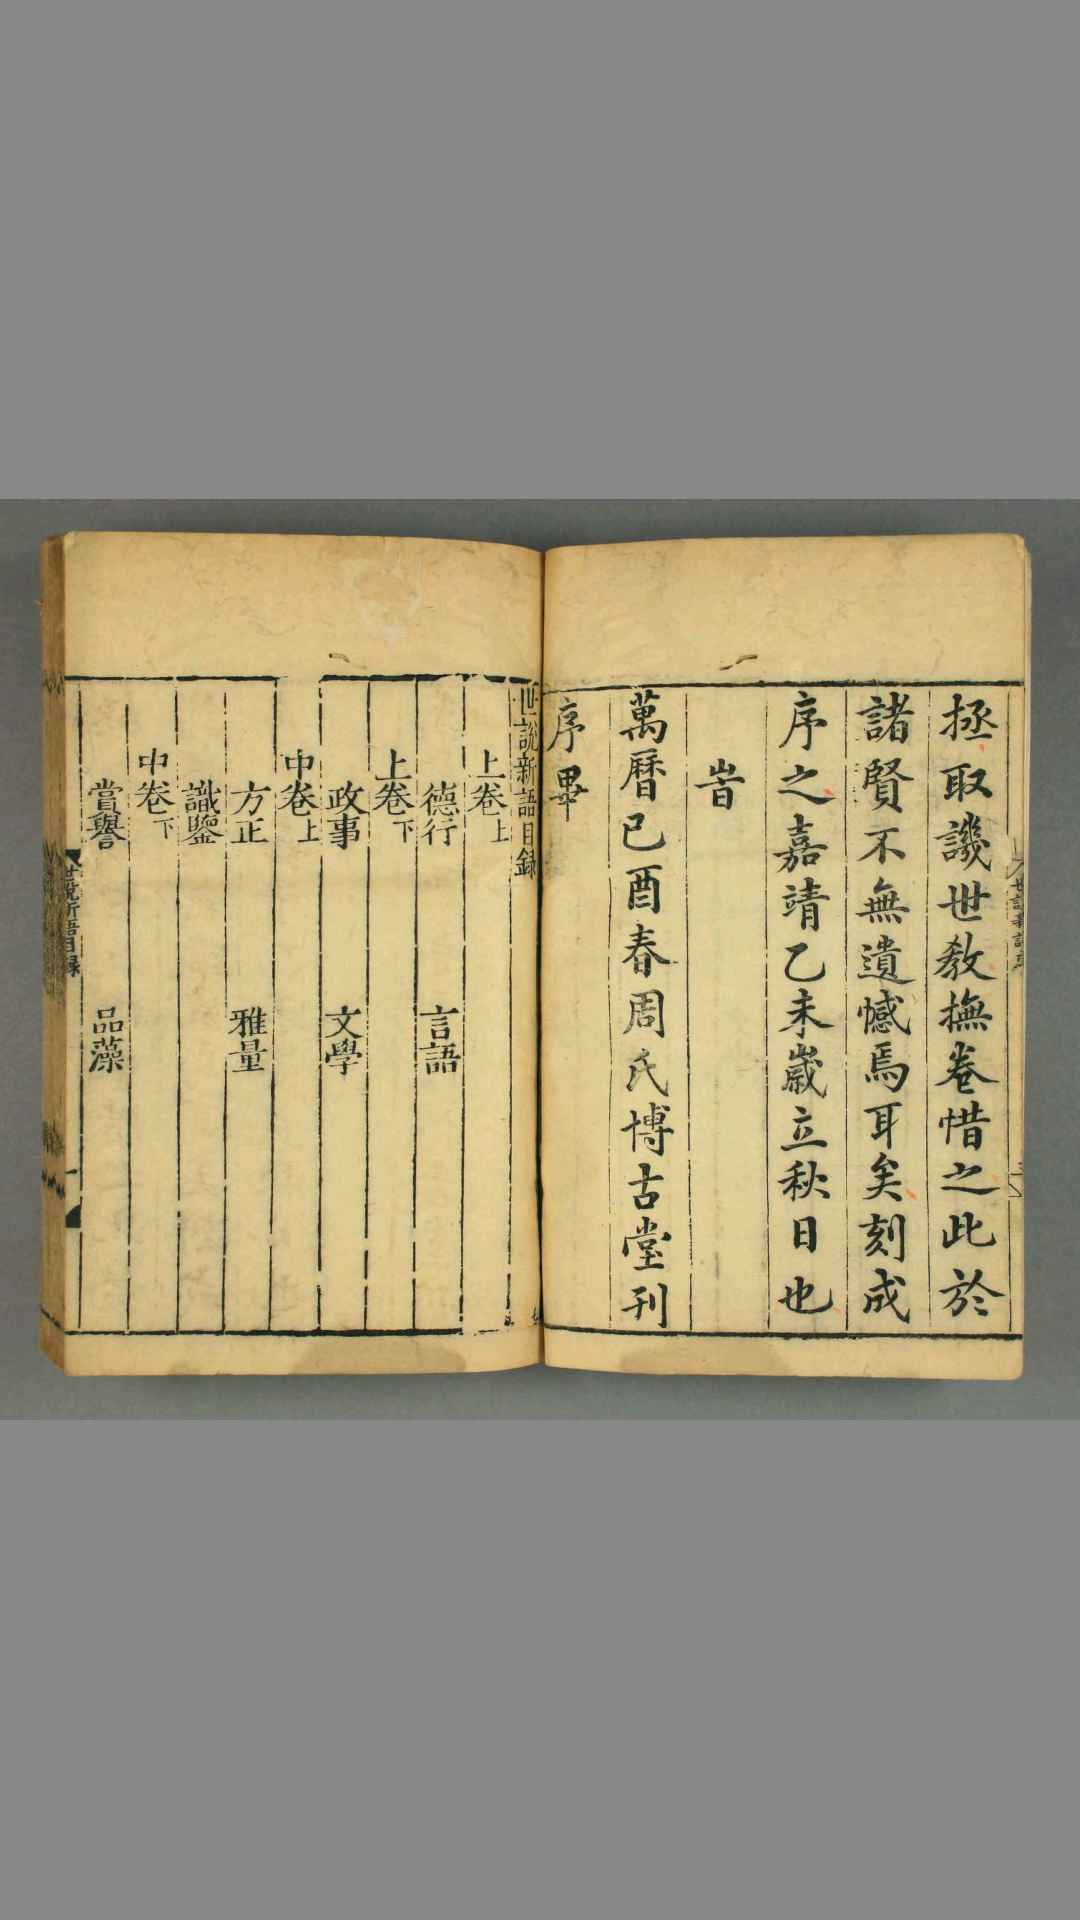 拯取譏世教撫卷惜之此於
諸賢不無遺憾焉耳矣刻成
序之嘉靖乙未歲立秋日也
旹
萬曆己酉春周氏博古堂刊
序畢
世說新語目録
上卷上
德行 言語
上卷下
政事 文學
中卷上
方正 雅量
識鑒
中卷下
賞譽 品藻
世說新語目録